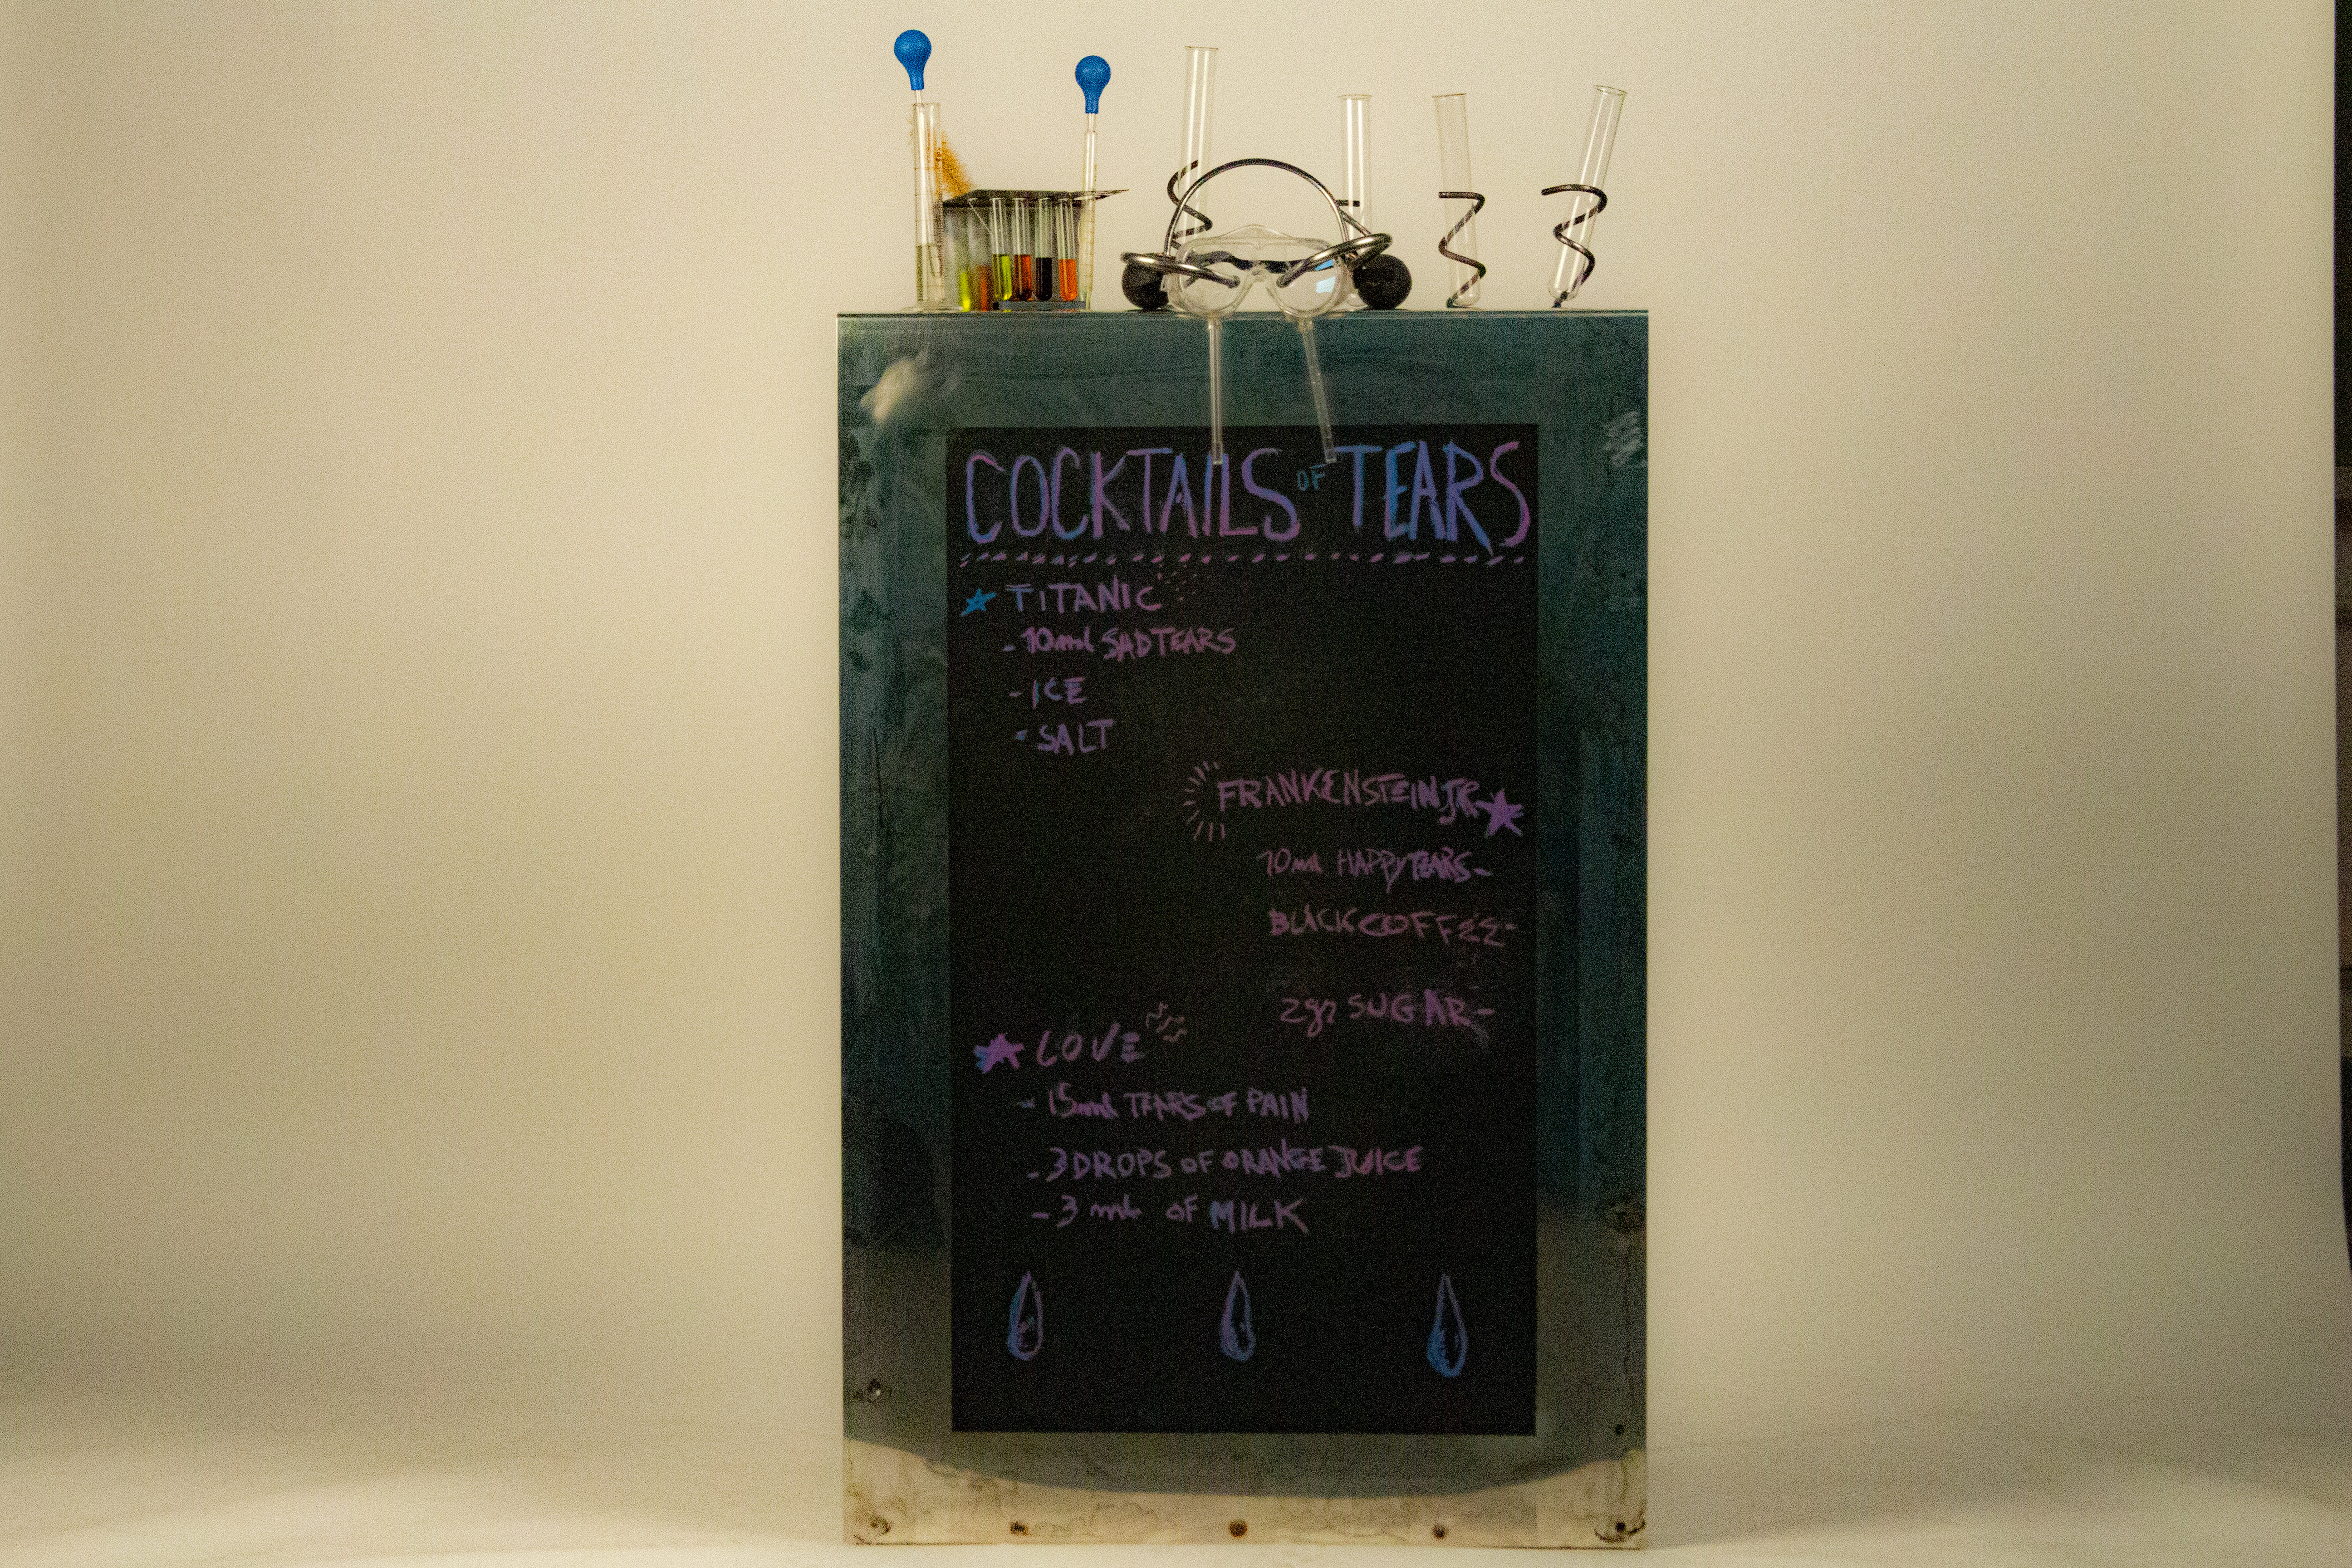 COCKTAILS OF TEARS
TITANIC
- 10ml SAD TEARS
- ICE
- SALT
FRANKENSTEIN JR
10ml HAPPY TEARS -
BLACK COFFEE -
2gr SUGAR -
LOVE
- 15ml TEARS OF PAIN
- 3 DROPS OF ORANGE JUICE
- 3 ml OF MILK